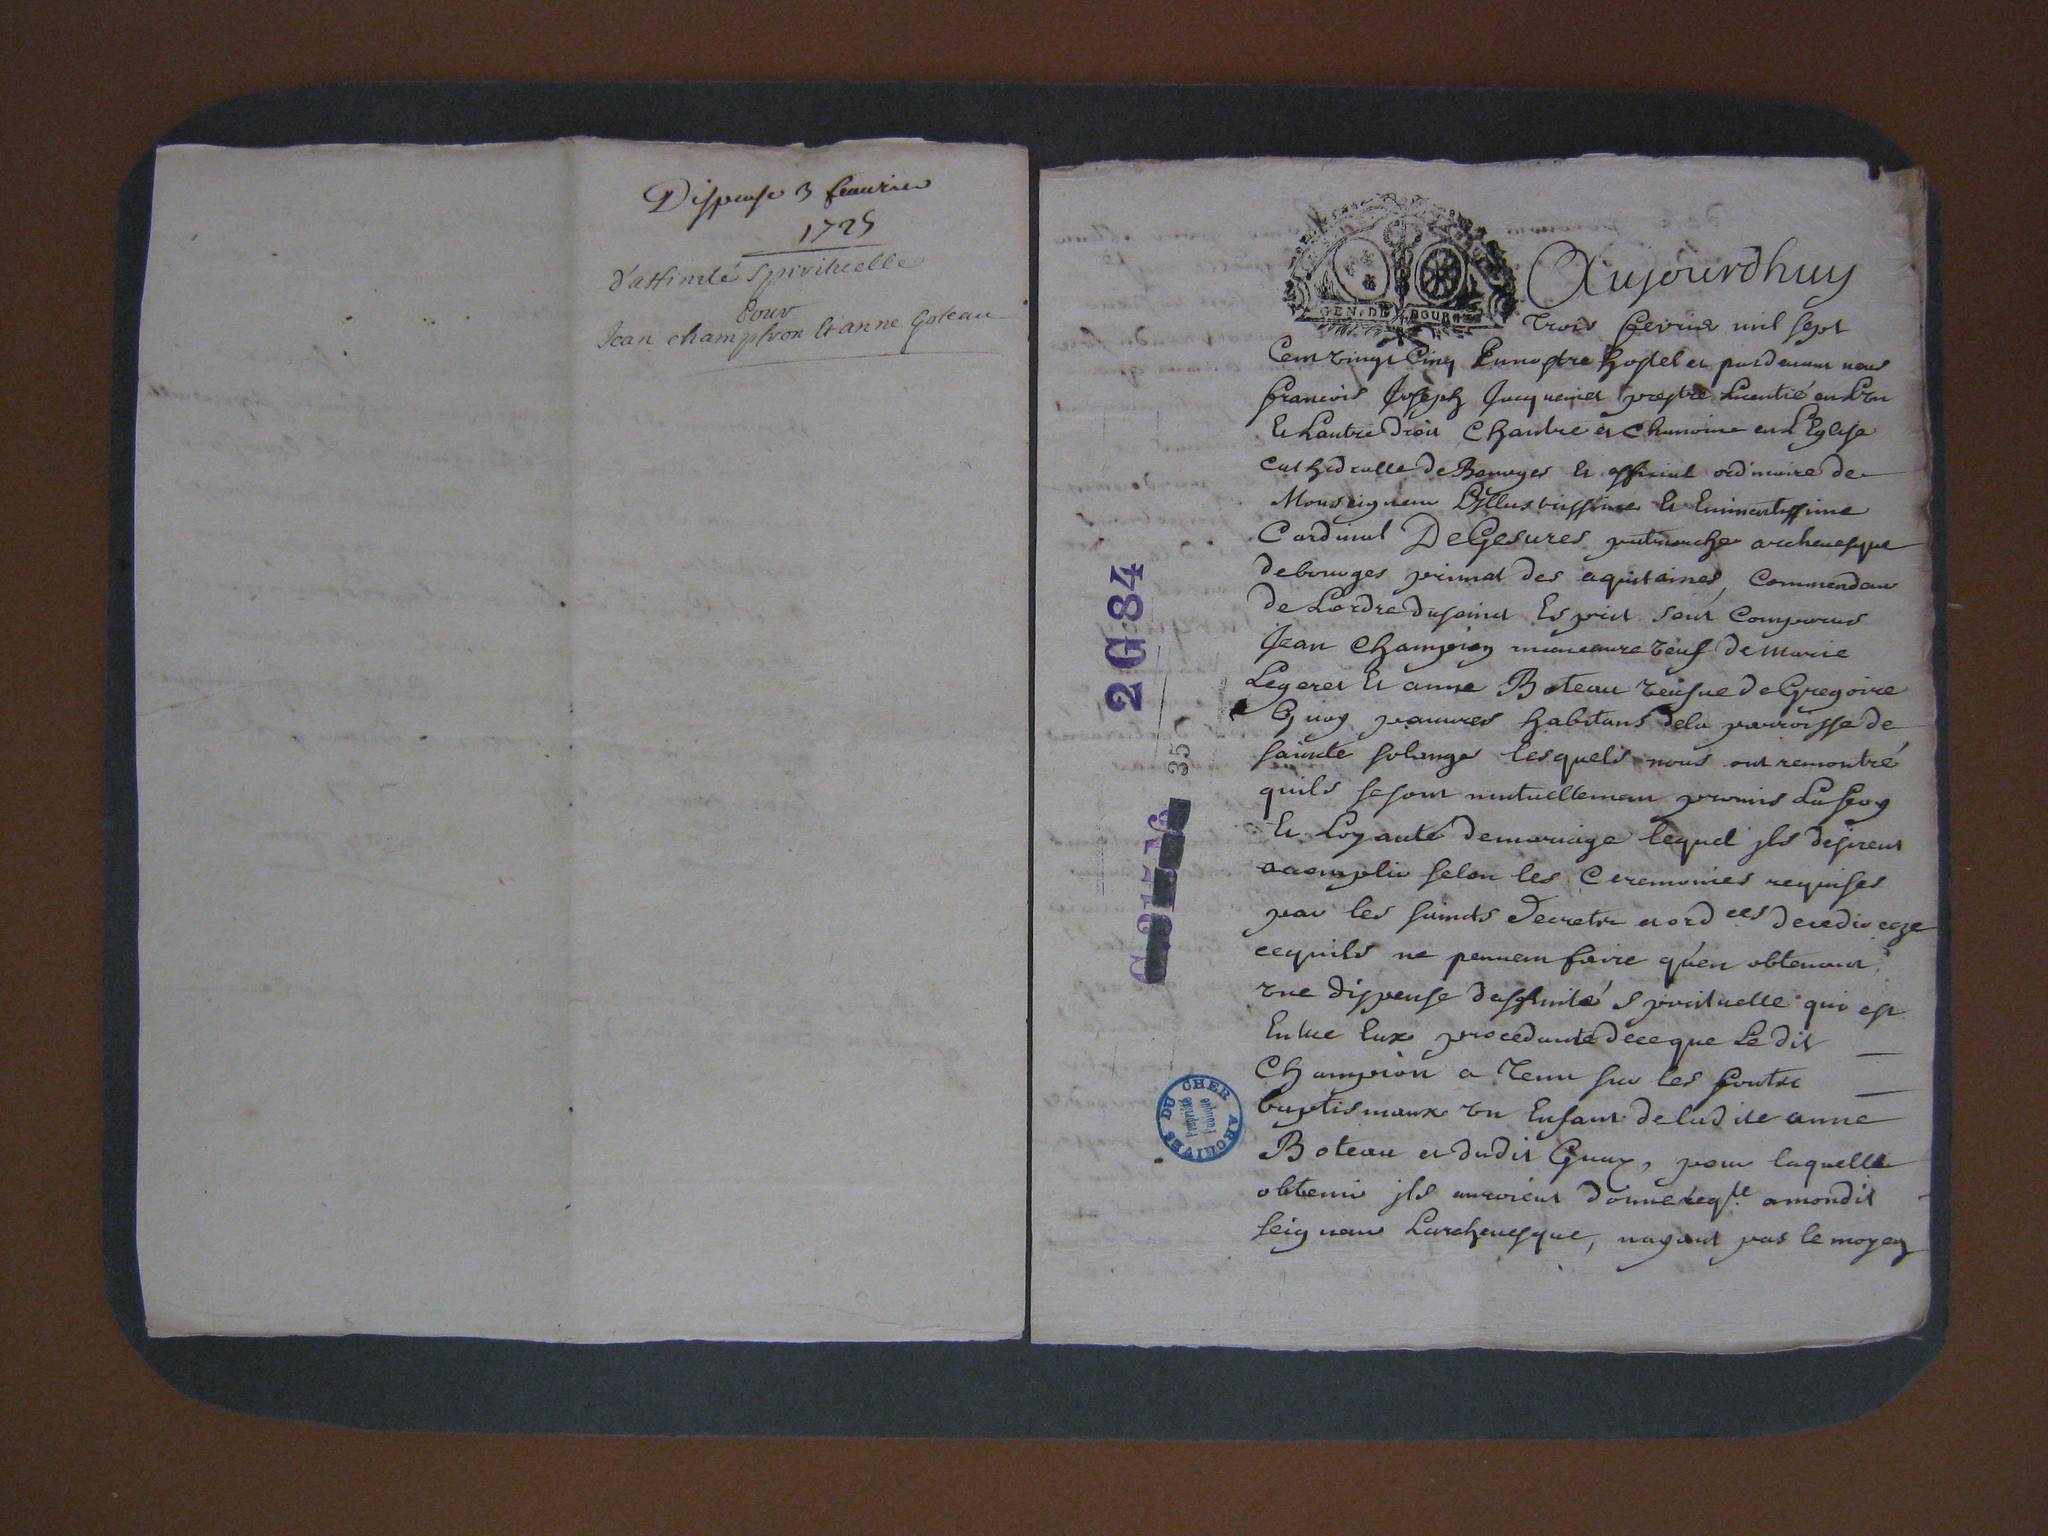 Dispense 3 feauvrier
1725
d'affinité spirituelle
Pour
Jean champion et anne Goteau
GEN. DE BOURGES
Aujourdhuy
trois fevrier mil sept
Cent vingt Cinq En nostre hostel et pardevant nous
francois Joseph Jacquemet prestre Licentié en L'vn
Et Lautre droit Chantre et Chanoine en L'Eglise
Cathedralle de Bourges Et official ordinaire de
Monseigneur L'Illustrissime Et Eminentissime
Cardinal De Gesures patriarche archeuesque
de bourges primat des aquitaines, Commandeur
de Lordre du saint Esprit sont Comparus
Jean Champion manoeuvre veuf de Marie
Legeret Et anne Boteau veufue de Gregoire
Guay pauures habitans de la parroisse de
sainte solange lesquels nous ont remontré
quils se sont mutuellement promis La foy
Et Loyauté de mariage lequel jls desirent
accomplir selon les Ceremonies requises
par les saincts Decrets et ord ces de ce dioceze
ce quils ne peuuent faire qu'en obtenant
vne dispense daffinité spirituelle qui est
Entre Eux procedante de ce que Le dit
Champion a tenu sur les fonts
baptismaux vn Enfant de ladite anne
Boteau et dudit Guay, pour laquelle
obtenir jls auroient donné reqte a mondit
seigneur Larcheuesque, nayant pas le moyen
2 G 84
35
ARCHIVES DU CHER
Propriété
Publique